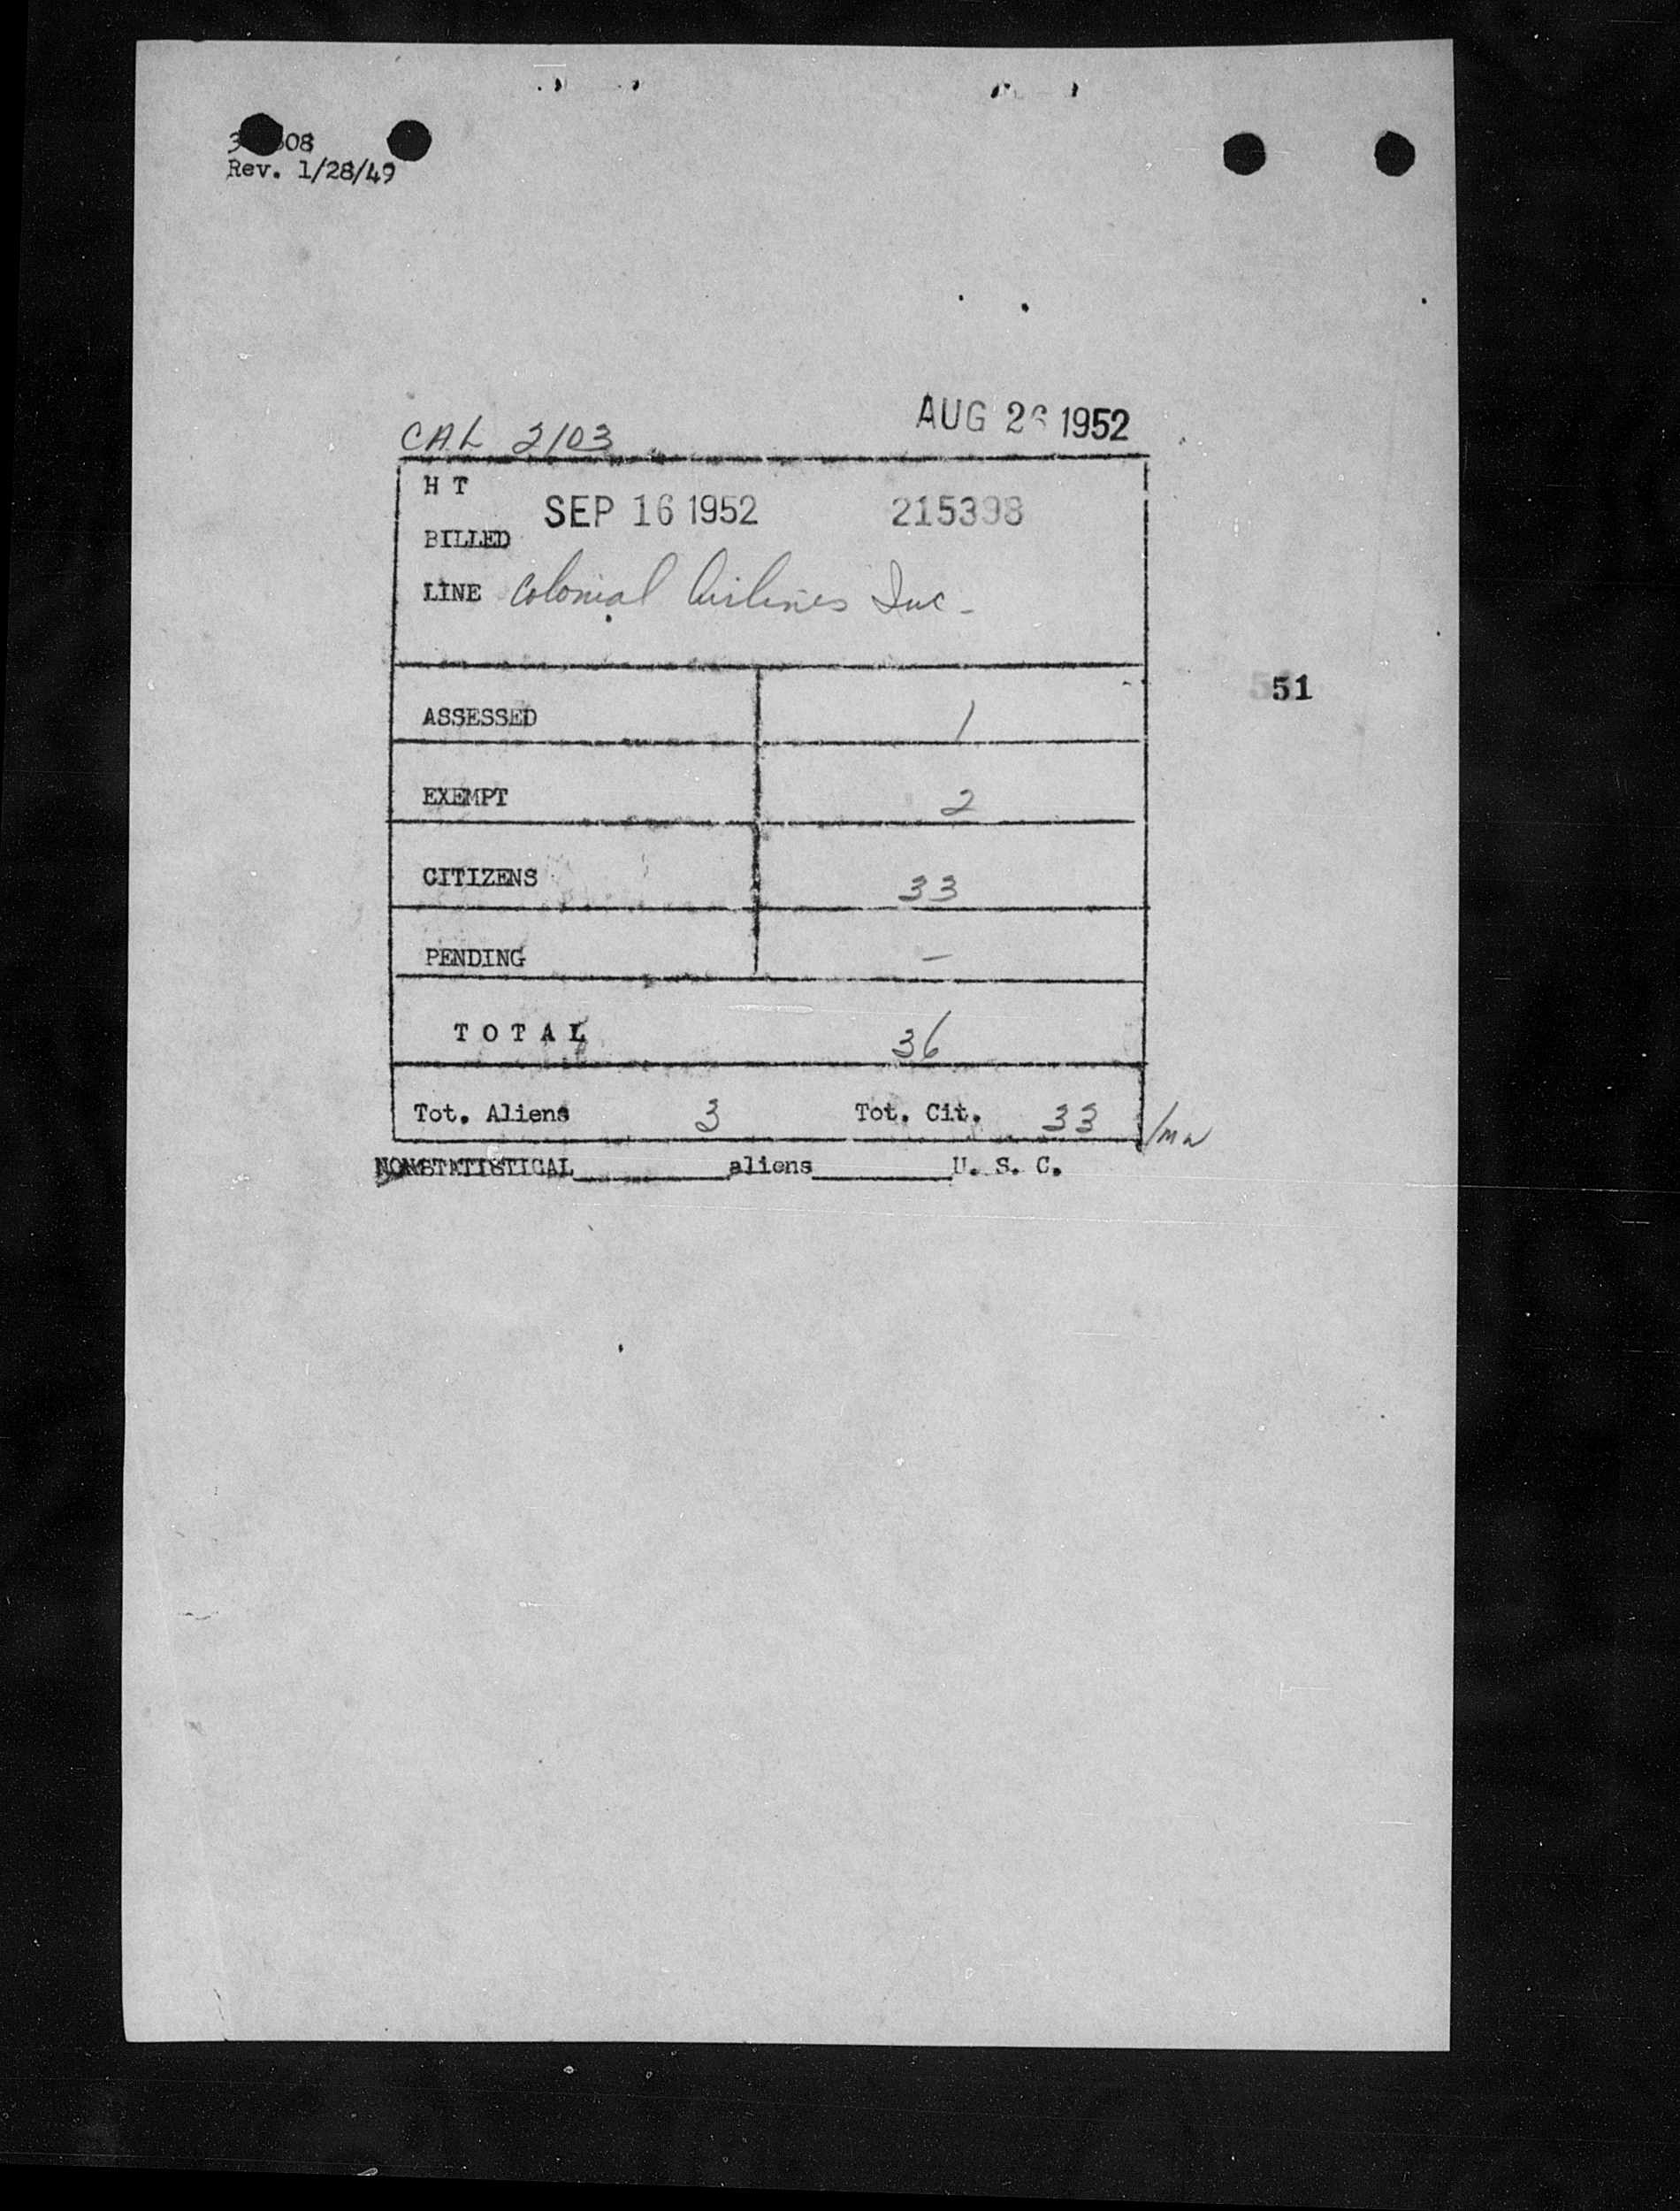 Rev. 1/28/49
CAL 2103
AUG 26 1952
H T
SEP 16 1952 215398
BILLED
LINE Colonial Airlines Inc-
51
ASSESSED 1
EXEMPT 2
CITIZENS 33
PENDING -
T O T A L 36
Tot. Aliens 3 Tot. Cit. 33 /mw
NONSTATISTICAL aliens U. S. C.